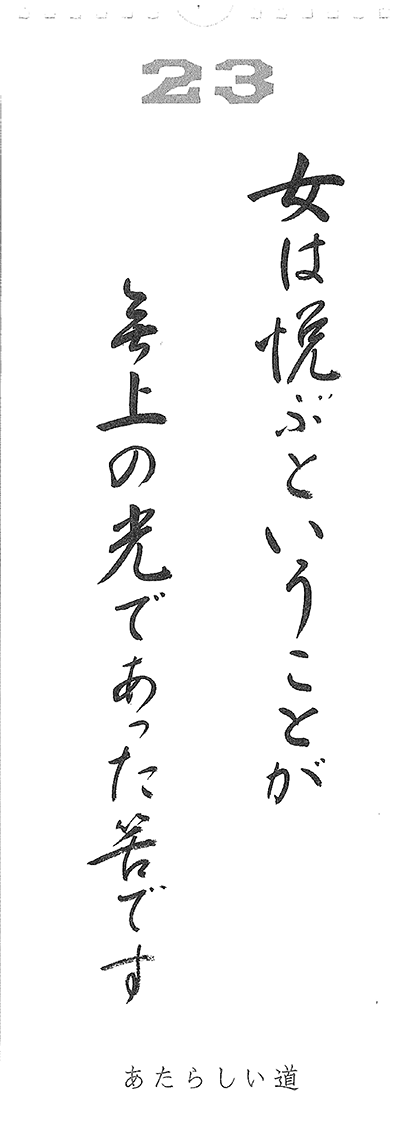 23
女は悦ぶということが
無上の光であった筈です
あたらしい道